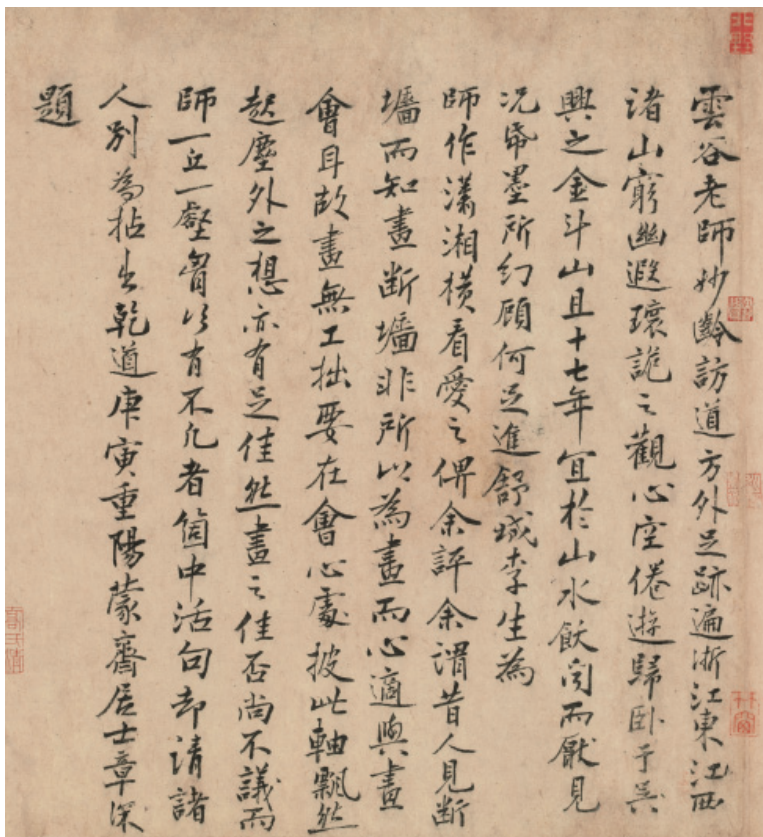 雲谷老師妙齡訪道方外足跡遍浙江東江西
諸山窮幽遐瓌詭之觀心空倦遊歸卧于吳
興之金斗山且十七年宜於山水飫聞而厭見
况帋墨所幻顧何足進舒城李生為
師作瀟湘橫看愛之俾余評余謂昔人見斷
墻而知畫断墻非所以為畫而心適與畫
會耳故畫無工拙要在會心處披此軸飄然
起塵外之想亦有足佳然畫之佳否尚不議而
師一丘一壑胷次有不凡者箇中活句却請諸
人別為拈出乾道庚寅重陽蒙齋居士章深
題